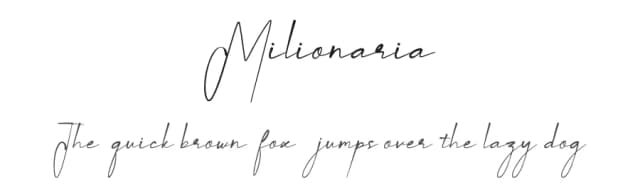 Milionaria
The quick brown fox jumps over the lazy dog